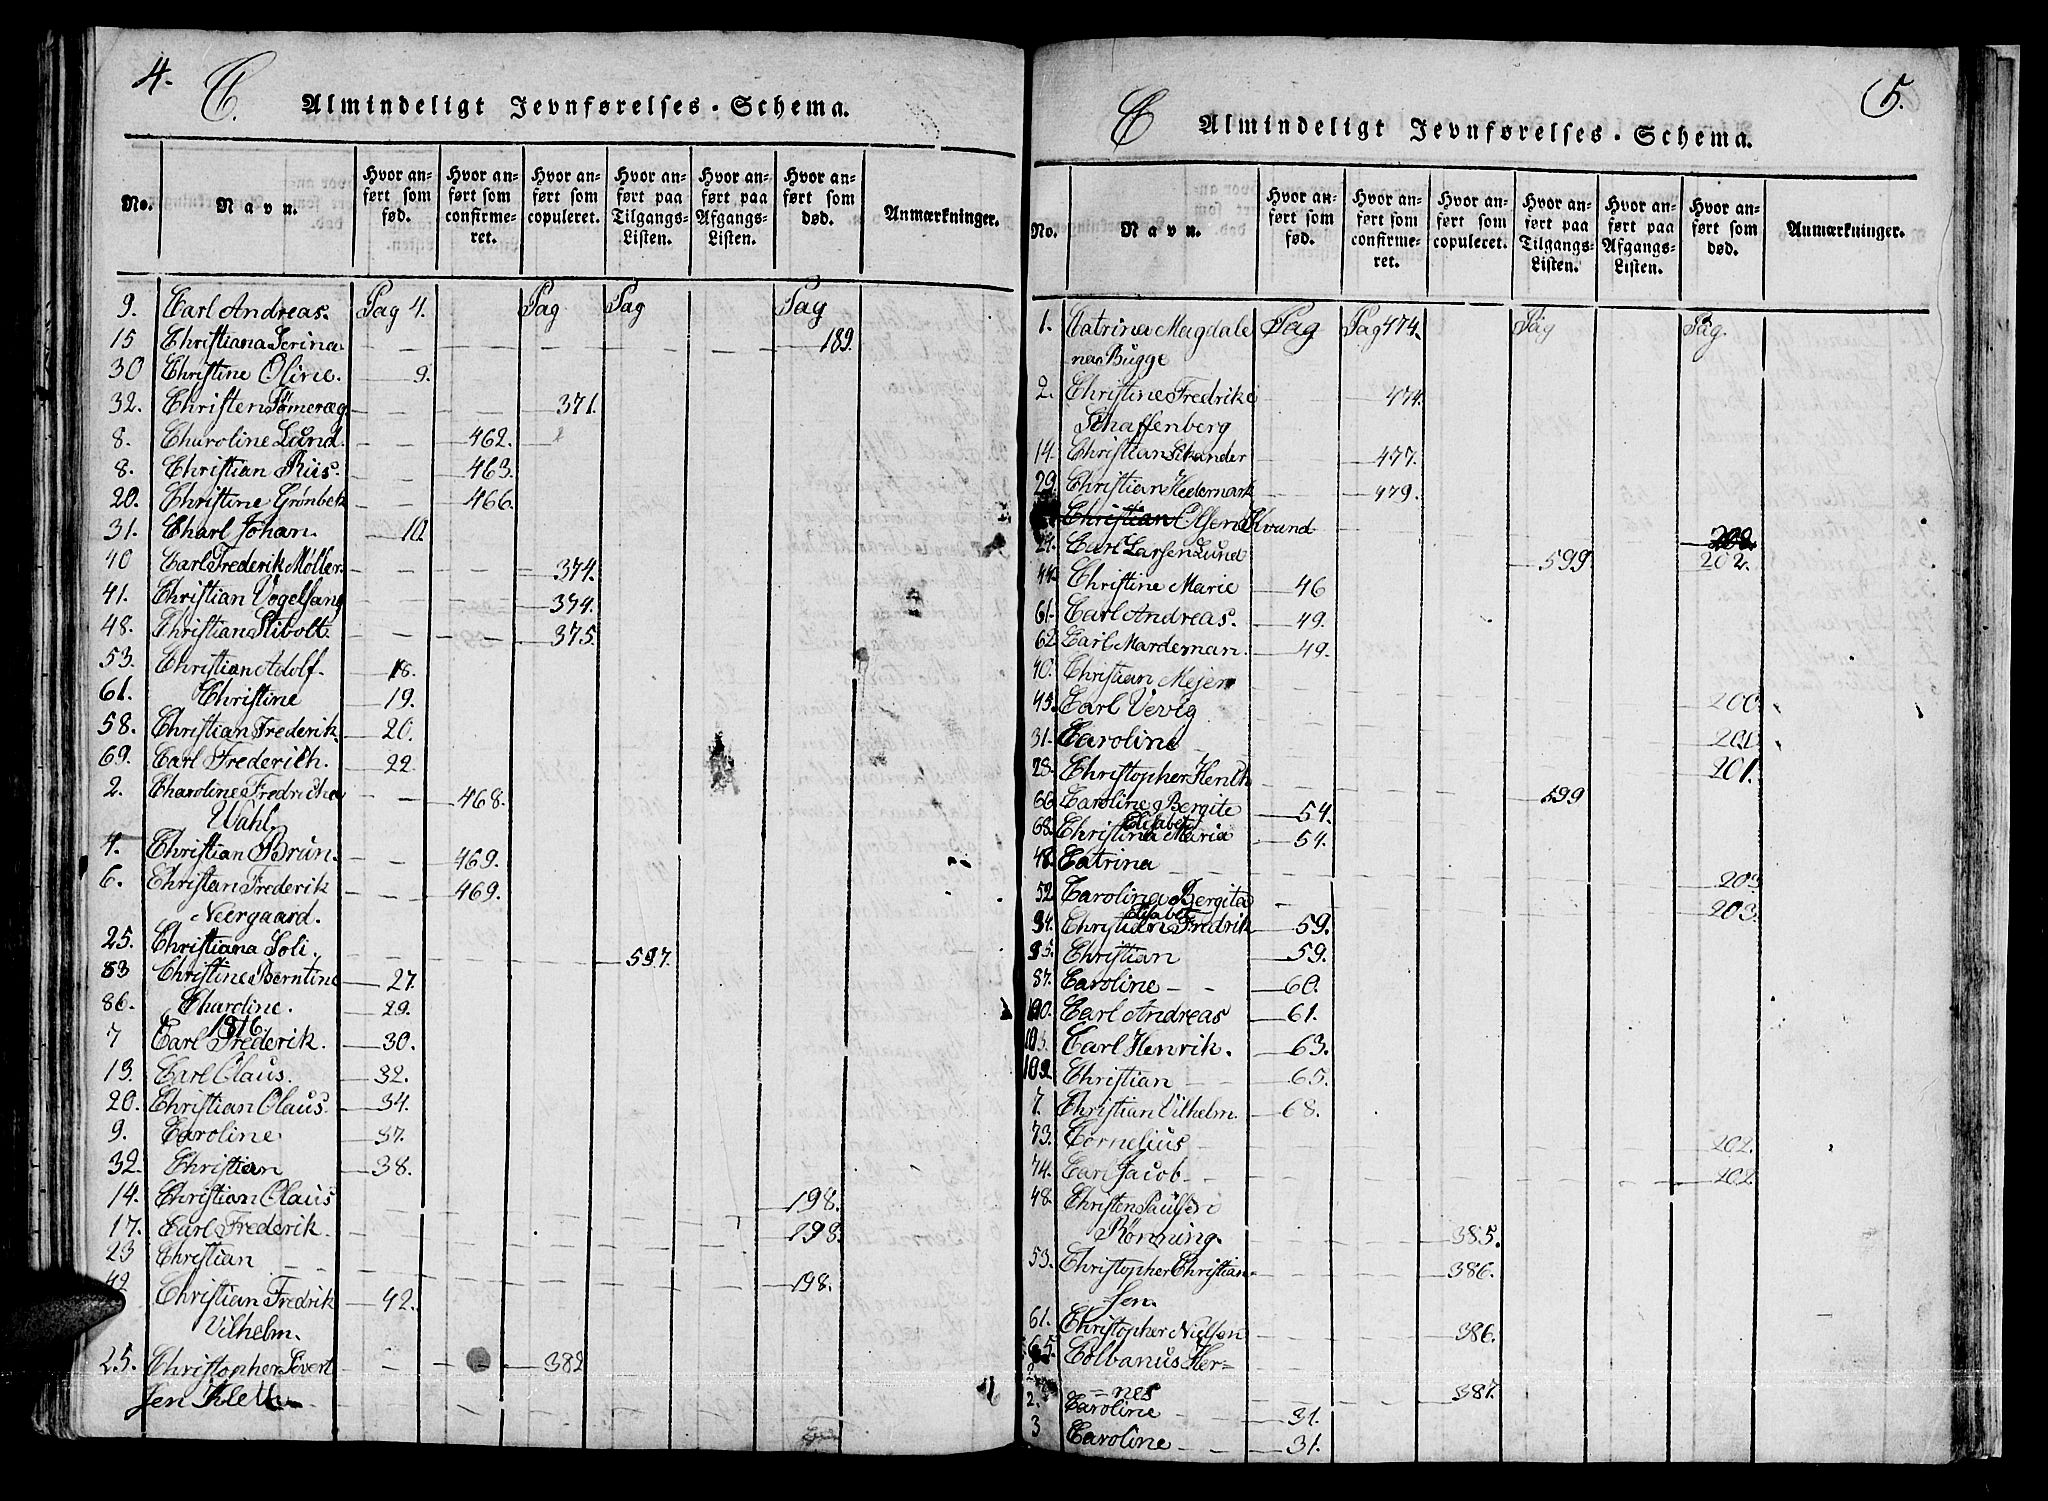 4. C. Almindeligt Jevnførelses-Schema.
No. Navn. Hvor anført som fød. Hvor anført som confirmeret. Hvor anført som copuleret. Hvor anført paa Tilgangs-Listen. Hvor anført paa Afgangs-Listen. Hvor anført som død. Anmærkninger.
9. Carl Andreas. Pag 4. Pag Pag Pag
15 Christiana Serina 189.
30 Christine Oline. 9.
32. Christen 371.
8. Charoline Lund. 462.
8. Christian Riis. 463.
20. Christine Grønbek 466.
31. Charl Johan. 10.
40 Carl Frederik Møller. 374.
41. Christian Vogelsang 374.
48. Christian Stibolt. 375.
53. Christian Adolf. 18.
61. Christine 19.
58. Christian Frederik. 20.
69. Carl Frederich. 22.
2. Charoline Fredricha 468.
Wahl.
4. Christian Brun. 469.
6. Christan Frederik 469.
Neergaard.
25. Christiana Soli. 597.
83 Christine Berntine 27.
86. Charoline. 29.
1816.
7 Carl Frederik. 30.
13. Carl Claus. 32.
20. Christian Olaus. 34.
9. Caroline 37.
32. Christian 38.
14. Christian Olaus 198.
17. Carl Frederik. 198.
23 Christian 198.
42 Christian Fredrik 42.
Vilhelm.
25. Christopher Sivert 382
sen Klett
C Almindeligt Jevnførelses-Schema. 5.
No. Navn. Hvor anført som fød. Hvor anført som confirmeret. Hvor anført som copuleret. Hvor anført paa Tilgangs-Listen. Hvor anført paa Afgangs-Listen. Hvor anført som død. Anmærkninger.
1. Catrina Magdale Pag Pag 474. Pag Pag.
na Bugge
2. Christine Fredrike 474.
Schaffenberg
14. Christian Skander 477.
29. Christian Hedemark 479.
Christian Olsen Svund 202.
Carl Larsen Lund 599 202.
44. Christine Marie 46
61. Carl Andreas. 49.
62 Carl Mardeman. 49.
40. Christian Mejer 200.
45. Carl Vevig 201
31. Caroline 201.
28. Christopher Hench 599
66 Caroline Bergite 54.
Elisabet
68. Christina Maria 54.
48. Catrina 203
52 Carolina Bergita 203.
Elisabet
94. Christian Fredrik 59.
95. Christian 59.
87. Caroline 60.
100. Carl Andreas 61.
103. Carl Henrik. 63.
109. Christian 65.
7. Christian Vilhelm. 68.
73. Cornelius 202.
74. Carl Jacob 202.
48. Christen Paulsen
Rønning. 385.
53. Christopher Christian= 386.
sen.
61. Christopher Nielsen 386.
65. Colbanus Her=
=nes 387.
2. Caroline 31.
3 Caroline 31.